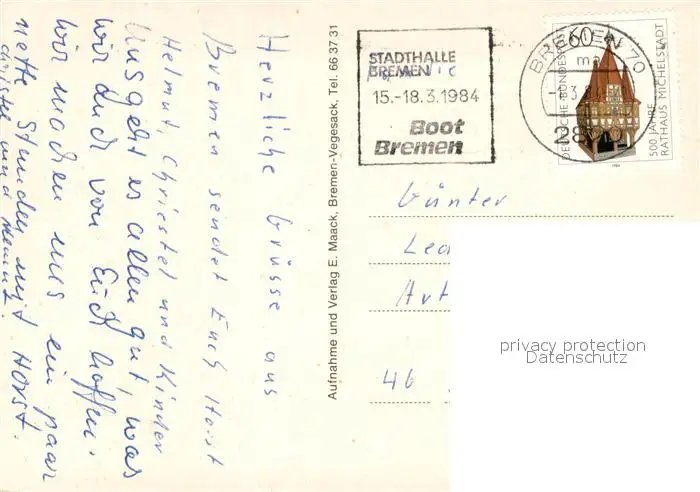 Herzliche Grüsse aus
Bremen sendet Euch Horst
Helmut, Christel und Kinder
Uns geht es allen gut, was
wir auch von Euch hoffen.
Wir machen uns ein paar
nette Stunden mit Horst.
Christel und Helmut.
Aufnahme und Verlag E. Maack, Bremen-Vegesack, Tel. 66 37 31
STADTHALLE
BREMEN
15.-18.3.1984
Boot
Bremen
BREMEN 70
2800
60
DEUTSCHE BUNDESPOST
500 JAHRE
RATHAUS MICHELSTADT
1984
Familie
Günter
46
privacy protection
Datenschutz